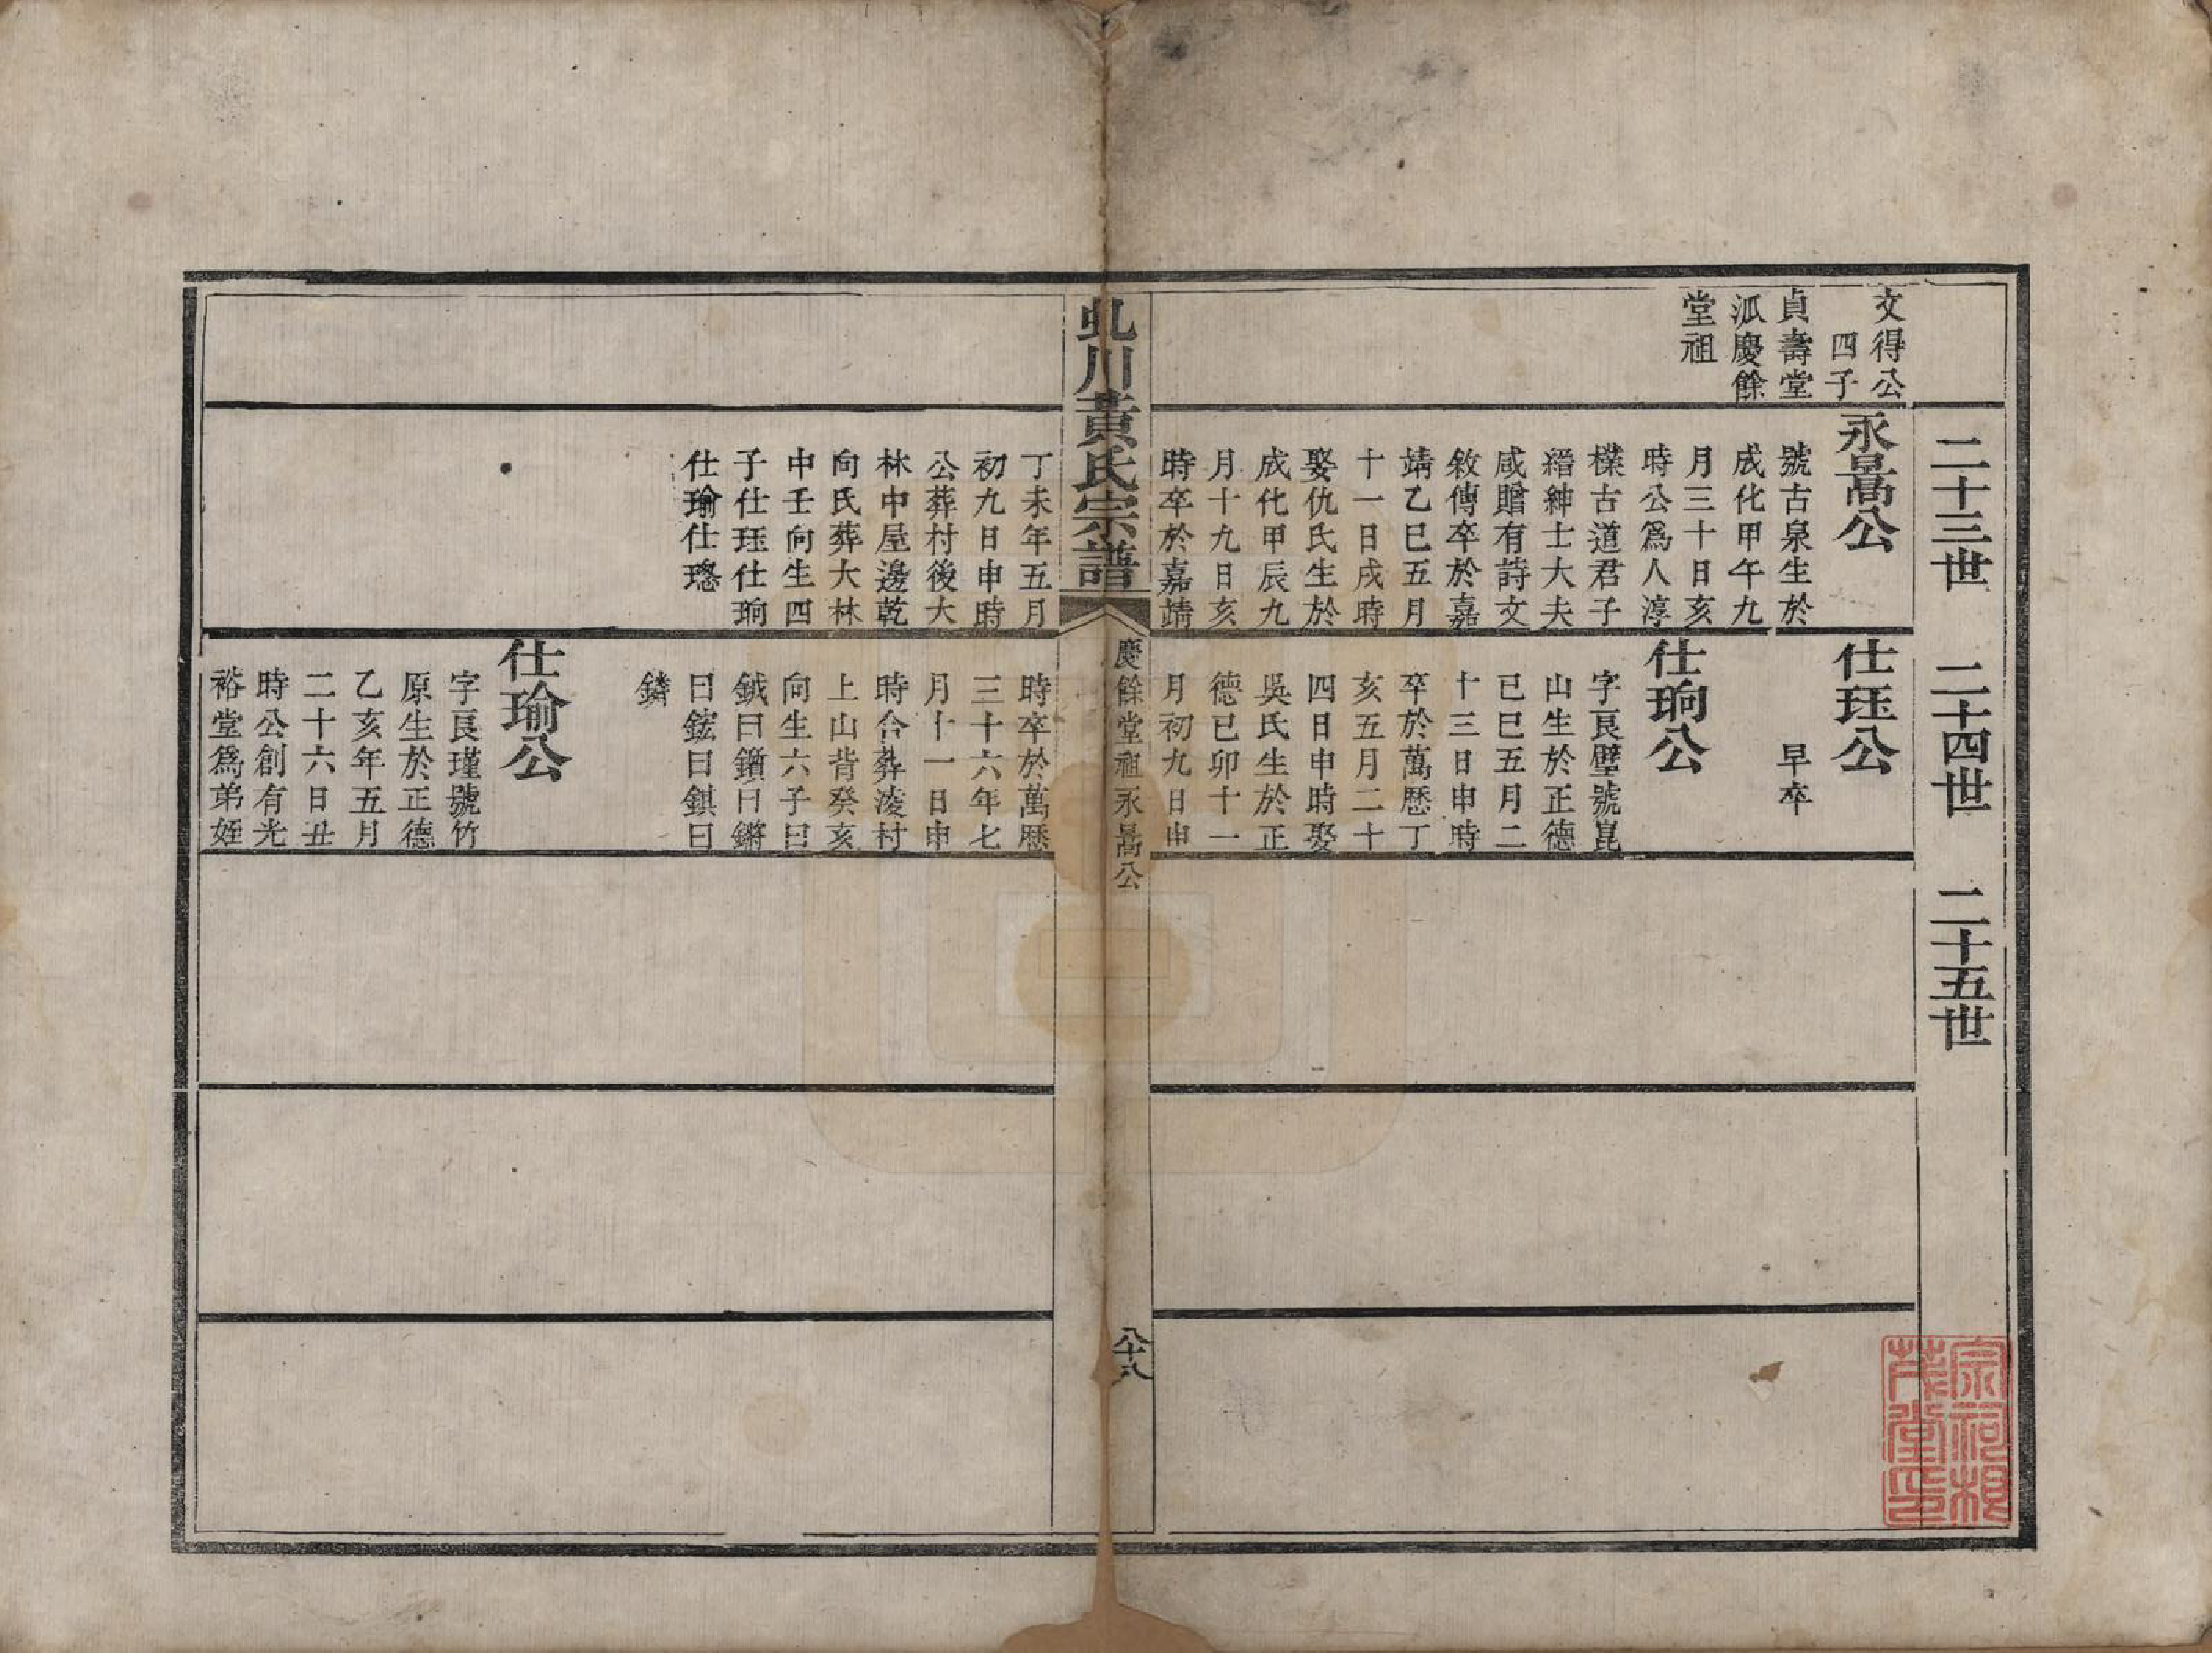 二十三世
二十四世
二十五世
文得公
四子
貞壽堂
派慶餘
堂祖
永暠公
號古泉生於
成化甲午九
月三十日亥
時公爲人淳
樸古道君子
縉紳士大夫
咸贈有詩文
敘傳卒於嘉
靖乙巳五月
十一日戌時
娶仇氏生於
成化甲辰九
月十九日亥
時卒於嘉靖
丁未年五月
初九日申時
公葬村後大
林中屋邊乾
向氏葬大林
中壬向生四
子仕珏仕珦
仕瑜仕璁
仕珏公
早卒
仕珦公
字良璧號崑
山生於正德
己巳五月二
十三日申時
卒於萬歷丁
亥五月二十
四日申時娶
吳氏生於正
德己卯十一
月初九日申
時卒於萬歷
三十六年七
月十一日申
時合葬凌村
上山背癸亥
向生六子曰
鉞曰鑽曰鏘
曰鋐曰錤曰
鏻
仕瑜公
字良瑾號竹
原生於正德
乙亥年五月
二十六日丑
時公創有光
裕堂爲弟姪
虬川黃氏宗譜
慶餘堂祖永暠公
八十八
宗祠根
茂堂印